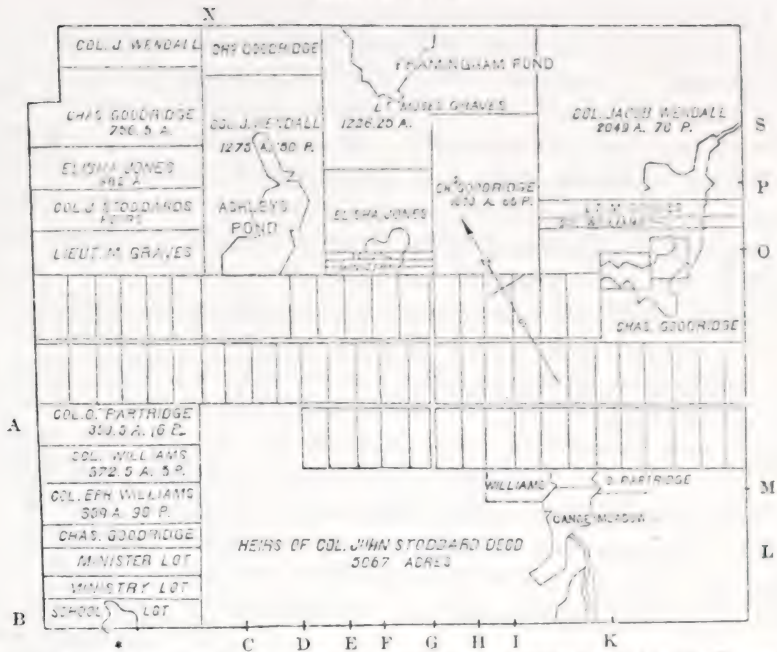 X
COL. J. WENDALL
CHS GOODRIDGE
FRAMINGHAM POND
LT MOSES GRAVES
1226.25 A.
CHAS. GOODRIDGE
756.5 A.
COL. J. WENDALL
1275 A. 50 P.
COL. JACOB WENDALL
2049 A. 76 P.
S
ELISHA JONES
COL. J. STODDARDS
ASHLEYS
POND
ELISHA JONES
CHS GOODRIDGE
P
LIEUT. M. GRAVES
O
CHAS. GOODRIDGE
A
COL. O. PARTRIDGE
COL. WILLIAMS
372.5 A. 5 P.
COL. EPH WILLIAMS
CHAS. GOODRIDGE
MINISTER LOT
MINISTRY LOT
SCHOOL LOT
WILLIAMS
O. PARTRIDGE
M
CANOE MEADOW
HEIRS OF COL. JOHN STODDARD DECD
5067 ACRES
L
B
* C D E F G H I K